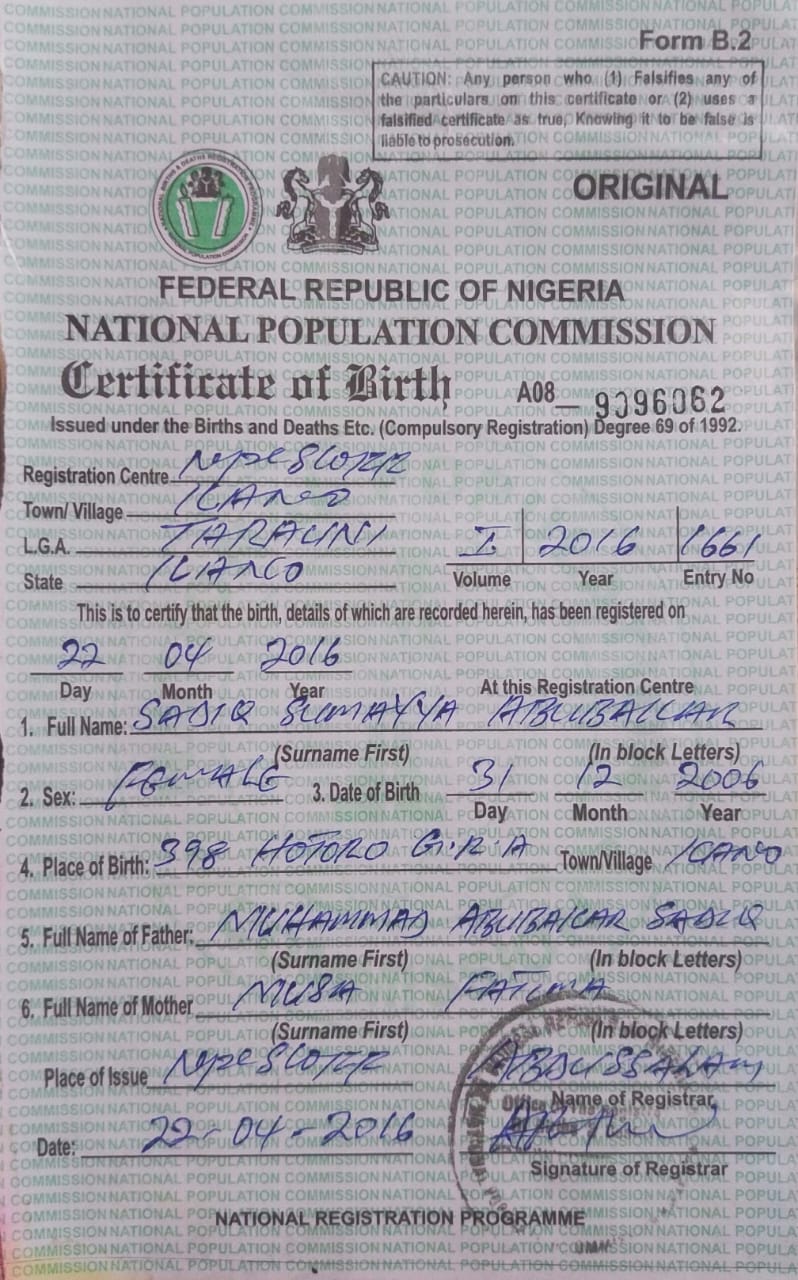 Form B.2
CAUTION: Any person who (1) Falsifies any of
the particulars on this certificate or (2) uses a
falsified certificate as true, Knowing it to be false is
liable to prosecution.
ORIGINAL
FEDERAL REPUBLIC OF NIGERIA
NATIONAL POPULATION COMMISSION
Certificate of Birth A08 9096062
Issued under the Births and Deaths Etc. (Compulsory Registration) Degree 69 of 1992.
Registration Centre
Town/ Village KANO
L.G.A. TARAUNI
State KANO
I 2016 1661
Volume Year Entry No
This is to certify that the birth, details of which are recorded herein, has been registered on
22 04 2016
Day Month Year At this Registration Centre
1. Full Name: SADIQ SUMAYYA ABUBAKAR
(Surname First) (In block Letters)
2. Sex: FEMALE 3. Date of Birth 31 12 2006
Day Month Year
4. Place of Birth: 398 HOTORO G.R.A Town/Village KANO
5. Full Name of Father: MUHAMMAD ABUBAKAR SADIQ
(Surname First) (In block Letters)
6. Full Name of Mother MUSA FATIMA
(Surname First) (In block Letters)
Place of Issue ABDUSSALAM
Name of Registrar
Date: 22-04-2016
Signature of Registrar
NATIONAL REGISTRATION PROGRAMME